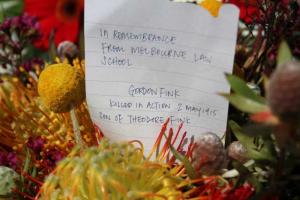 IN REMEMBRANCE
FROM MELBOURNE LAW
SCHOOL
GORDON FINK
KILLED IN ACTION 2 MAY 1915
SON OF THEODORE FINK